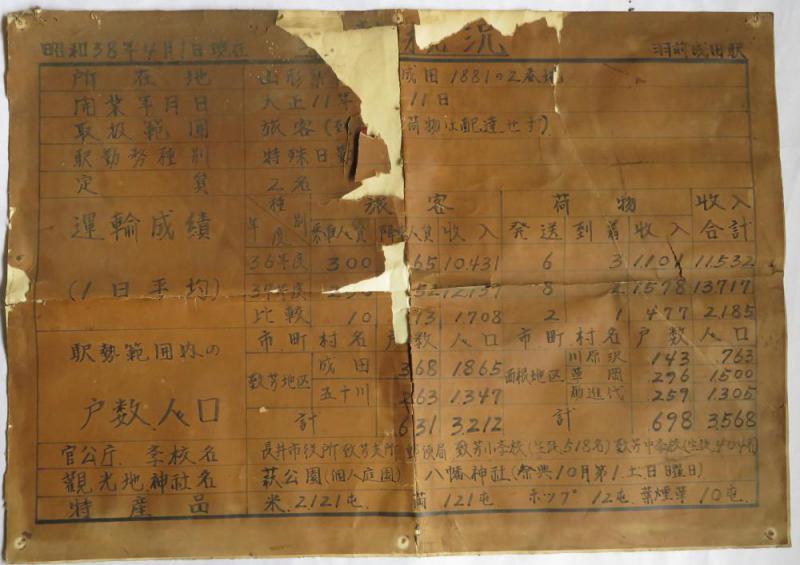 昭和38年4月1日現在 概況 羽前成田駅
所在地 山形県 成田1881の2番地
開業年月日 大正11年 11日
取扱範囲 旅客( 荷物は配達せず)
駅勤務種別 特殊日勤
定員 2名
運輸成績 (1日平均)
種別 年度 旅客 荷物 収入合計
乗車人員 人員 収入 発送 到着 収入
36年度 300 65 10.431 6 3 1.101 11.532
37年度 52 12.139 8 2 1.578 13.717
比較 10 1.708 2 1 477 2.185
駅勢範囲内の 戸数人口
市町村名 戸数 人口 市町村名 戸数 人口
致芳地区 成田 368 1.865 西根地区 川原沢 143 763
草岡 296 1.500
五十川 263 1.347 勧進代 259 1.305
計 631 3.212 計 698 3.568
官公庁、学校名 長井市役所致芳支所 郵便局 致芳小学校(生徒518名) 致芳中学校(生徒404名)
観光地神社名 萩公園(個人庭園) 八幡神社(祭典10月第1.土日曜日)
特産品 米.2.121屯. 121屯 ホップ 12屯.葉煙草10屯.